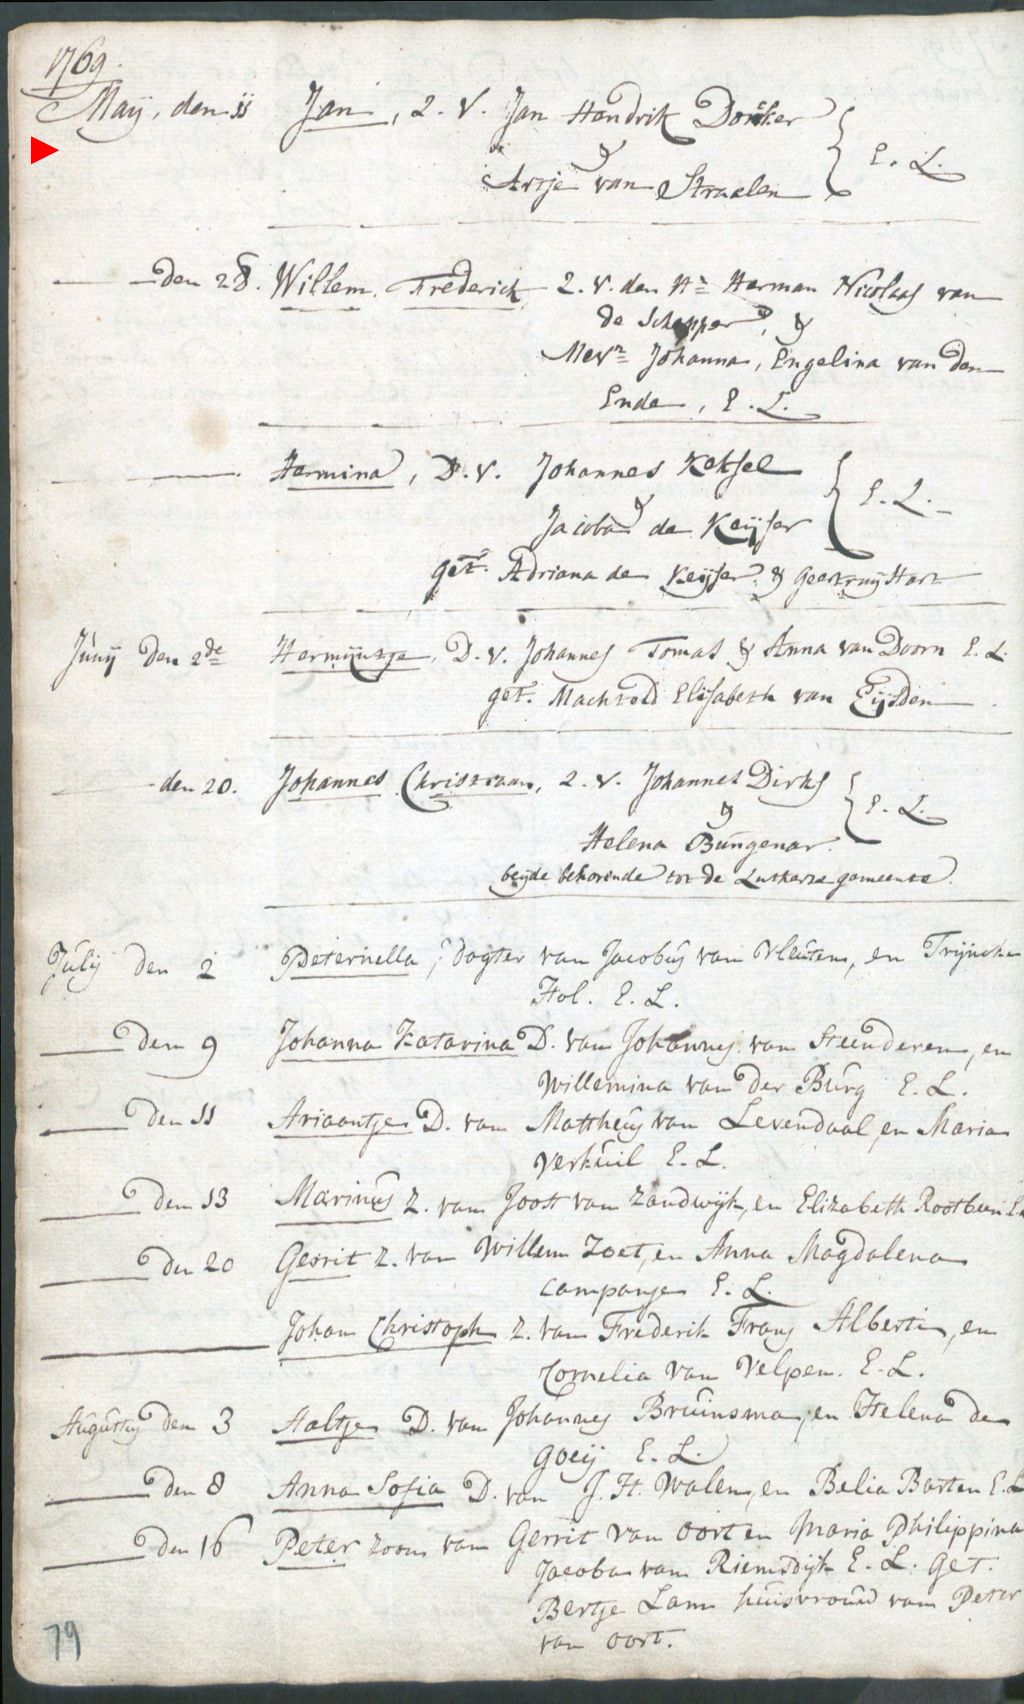 1769.
Maij, den 11 Jan, Z. V. Jan Hendrik Donker
& E. L.
Artje van Straalen
den 28. Willem Frederick Z. V. den Hr Herman Nicolaas van
de Schepper, &
Mevr Johanna, Engelina van den
Ende, E. L.
Hermina, D. V. Johannes Keksel
& E. L.
Jacoba de Keijser
get. Adriana de Keijser & Geertruij Hart
Junij den 2de Hermijntje, D. V. Johannes Tomas & Anna van Doorn E. L.
get. Machteld Elisabeth van Eijsden
den 20. Johannes Christiaan, Z. V. Johannes Dirks
& E. L.
Helena Bungenar.
beijde behorende tot de Lutherse gemeente.
Julij den 2 Peternella, dogter van Jacobus van Vleuten, en Trijntke
Hol. E. L.
den 9 Johanna Katarina D. van Johannes van Steenderen, en
Willemina van der Burg E. L.
den 11 Ariaantje D. van Mattheus van Levendaal, en Maria
Verkuil E. L.
den 13 Marinus Z. van Joost van Zandwijk, en Elizabeth Rootbeen E.
den 20 Gerrit Z. van Willem Zoet, en Anna Magdalena
Campanje E. L.
Johan Christoph Z. van Frederik Frans Alberti, en
Cornelia van Velpen. E. L.
Augustus den 3 Aaltje D. van Johannes Bruinsma, en Helena de
Goeij E. L.
den 8 Anna Sofia D. van J. H. Walen, en Belia Barten E. L
den 16 Peter zoon van Gerrit van Oort en Maria Philippina
Jacoba van Riemsdijk E. L. Get.
Bertje Lam huisvrouw van Peter
van Oort.
79